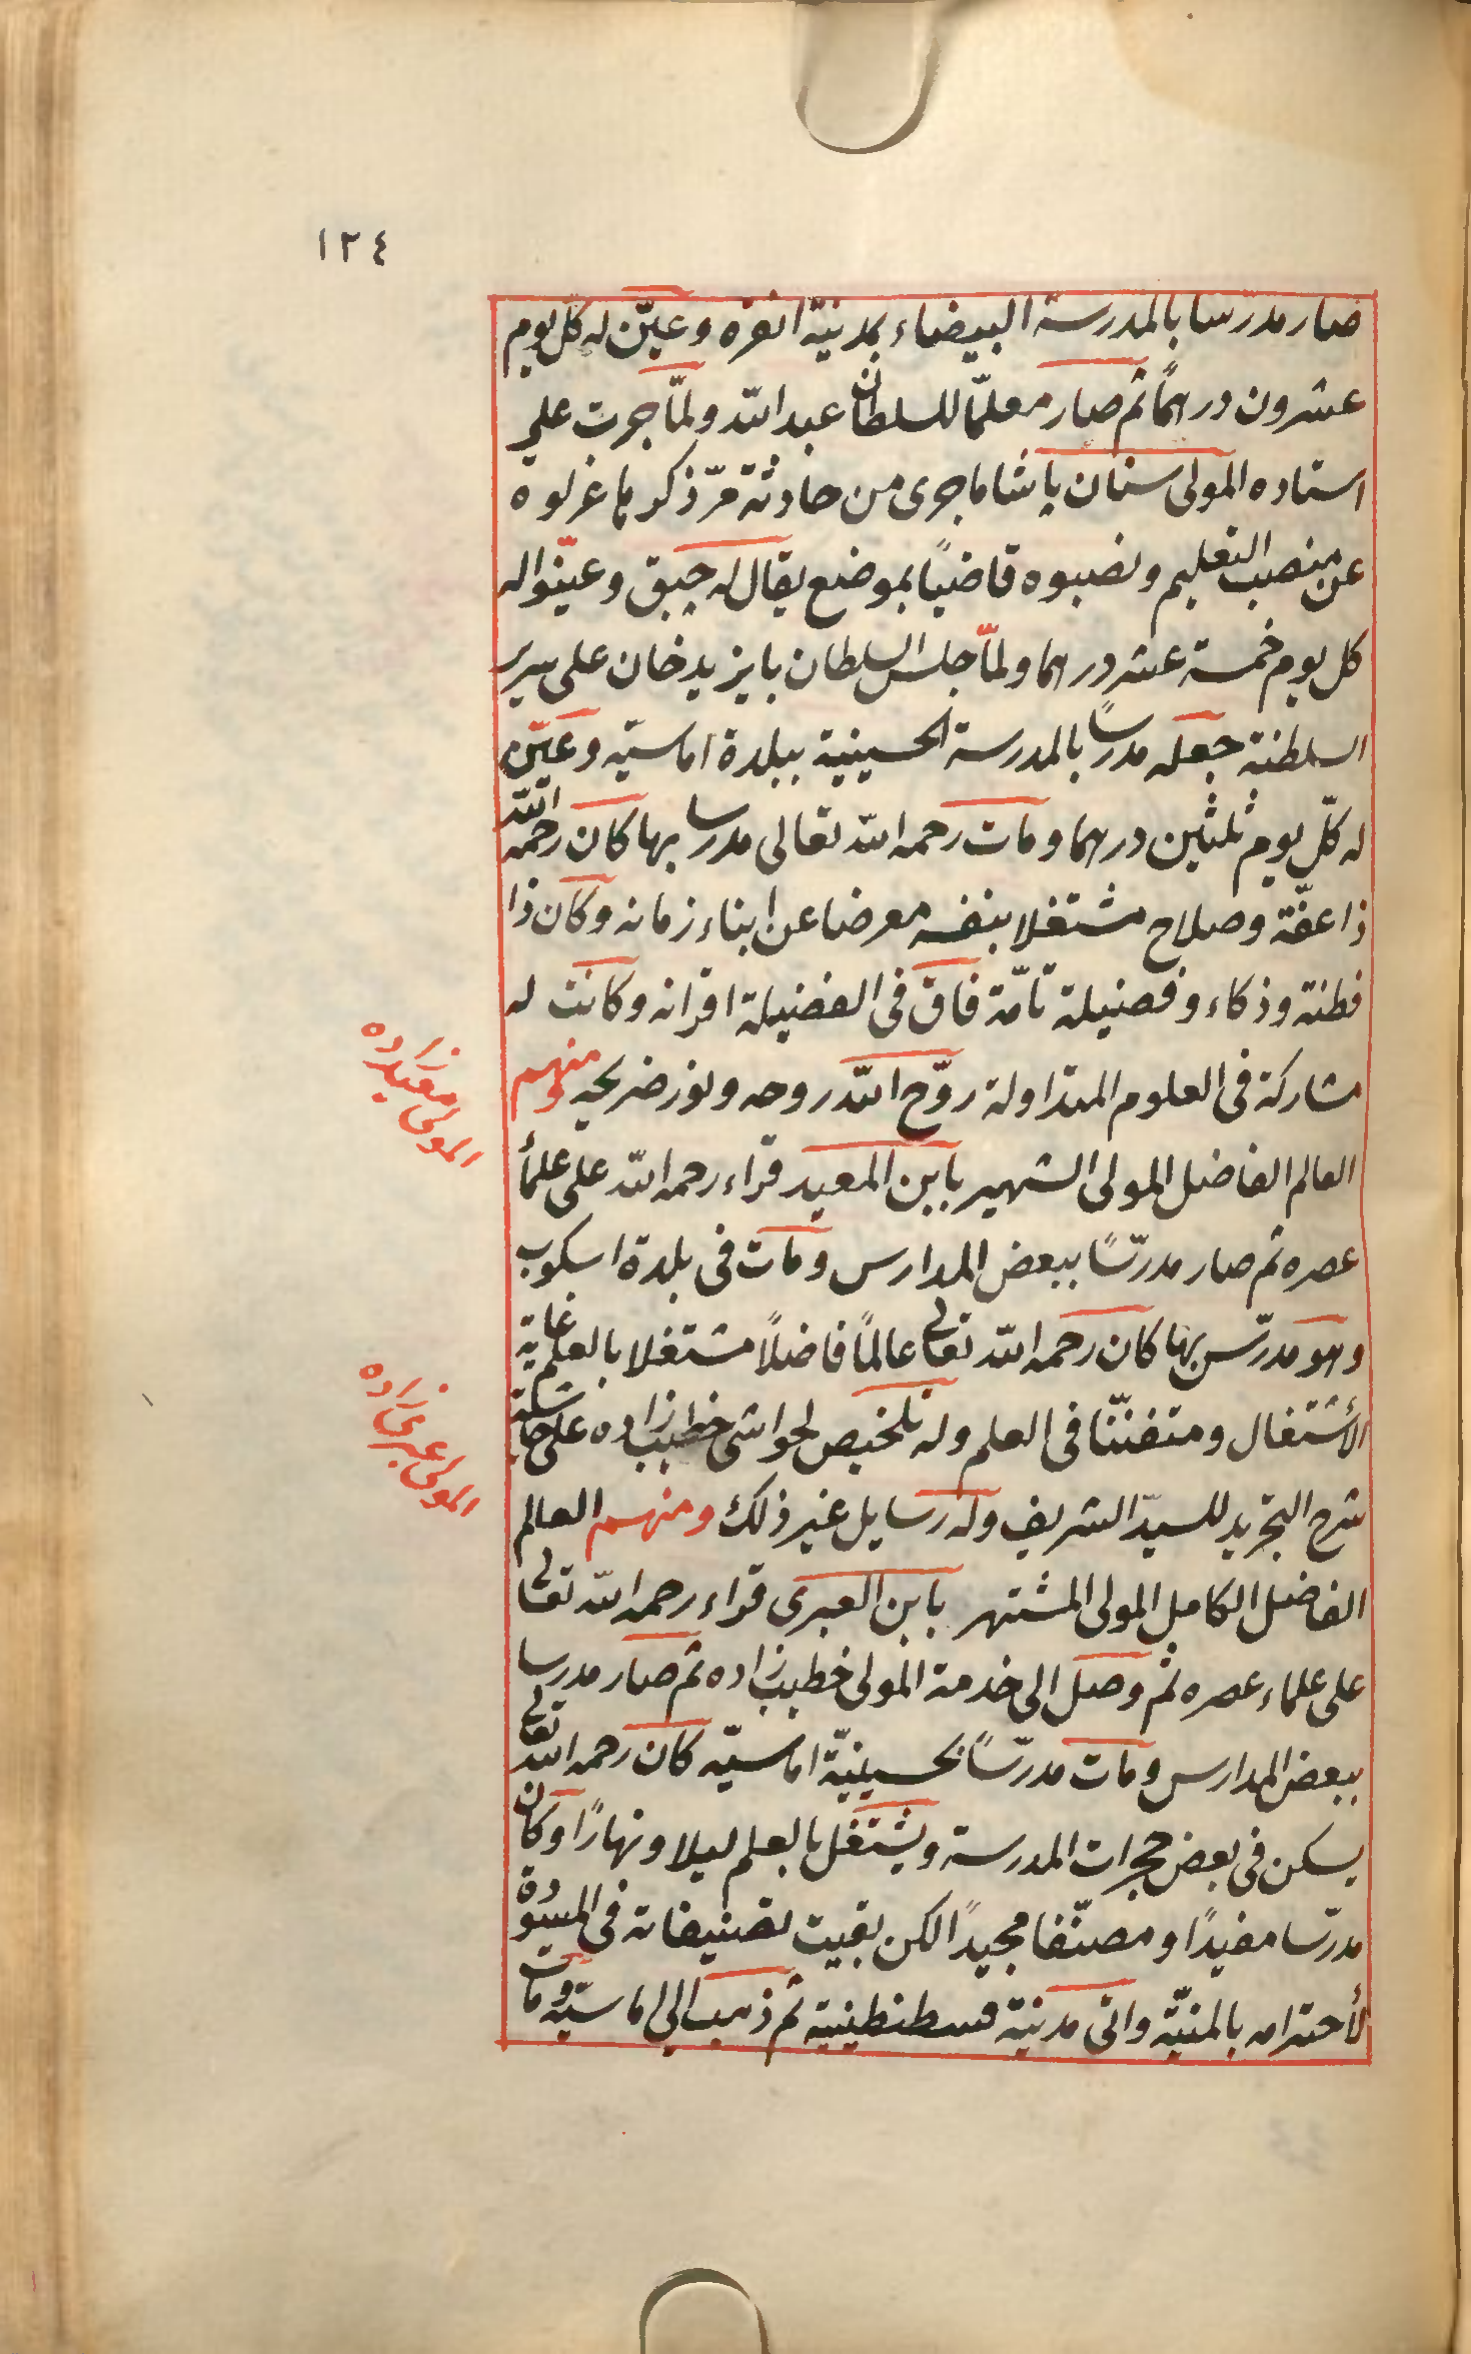 ١٢٤
صار مدرسا بالمدرسة البيضاء بمدينة انقره وعيّن له كلّ يوم
عشرون درهمًا ثم صار معلمّا للسلطان عبد الله ولمّا جرت على
استاده المولى سنان پاشا ما جرى من حادثة مرّ ذكرها عزلوه
عن منصب التعليم ونصبوه قاضيًا بموضع يقال له چبق وعينّوا له
كل يوم خمسة عشر درهما ولمّا جلس السلطان بايزيد خان على سرير
السلطنة جعله مدرسًا بالمدرسة الحسينية ببلدة اماسيّه وعيّن
له كلّ يوم ثلثين درهما ومات رحمه الله تعالى مدرسا بها كان رحمه الله
ذا عفّة وصلاح مشتغلا بنفسه معرضا عن ابناء زمانه وكان ذا
فطنة وذكاء وفضيلة تامّة فاق فى الفضيلة اقرانه وكانت له
مشاركة فى العلوم المتداولة روّح الله روحه ونور ضريحه ومنهم
العالم الفاضل المولى الشهير بابن المعيد قراء رحمه الله على علمأ
عصره ثم صار مدرّسًا ببعض المدارس ومات فى بلدة اسكوب
وهو مدرّس بها كان رحمه الله تعالى عالمًا فاضلاً مشتغلا بالعلم غاية
الأشتغال ومتفننّا فى العلم وله تلخيص لحواشى خطيب زاده على حاشية
شرح التجريد للسيّد الشريف وله رسايل غير ذلك ومنهم العالم
الفاضل الكامل المولى المشتهر بابن العبرى قراء رحمه الله تعالى
على علماء عصره ثم وصل الى خدمة المولى خطيب زاده ثم صار مدرسا
ببعض المدارس ومات مدرّسًا بحسينيّة اماسيّه كان رحمه الله تعالى
يسكن فى بعض حجرات المدرسة ويشتغل بالعلم ليلا ونهارًا وكان
مدرّسا مفيدًا ومصنّفا مجيدًا لكن بقيت تصنيفاته فى المسودة
لأحترامه بالمنيّة واتى مدينة قسطنطينية ثم ذهب الى اماسيّه ومات
المولى معيد زاده
المولى عبرى زاده